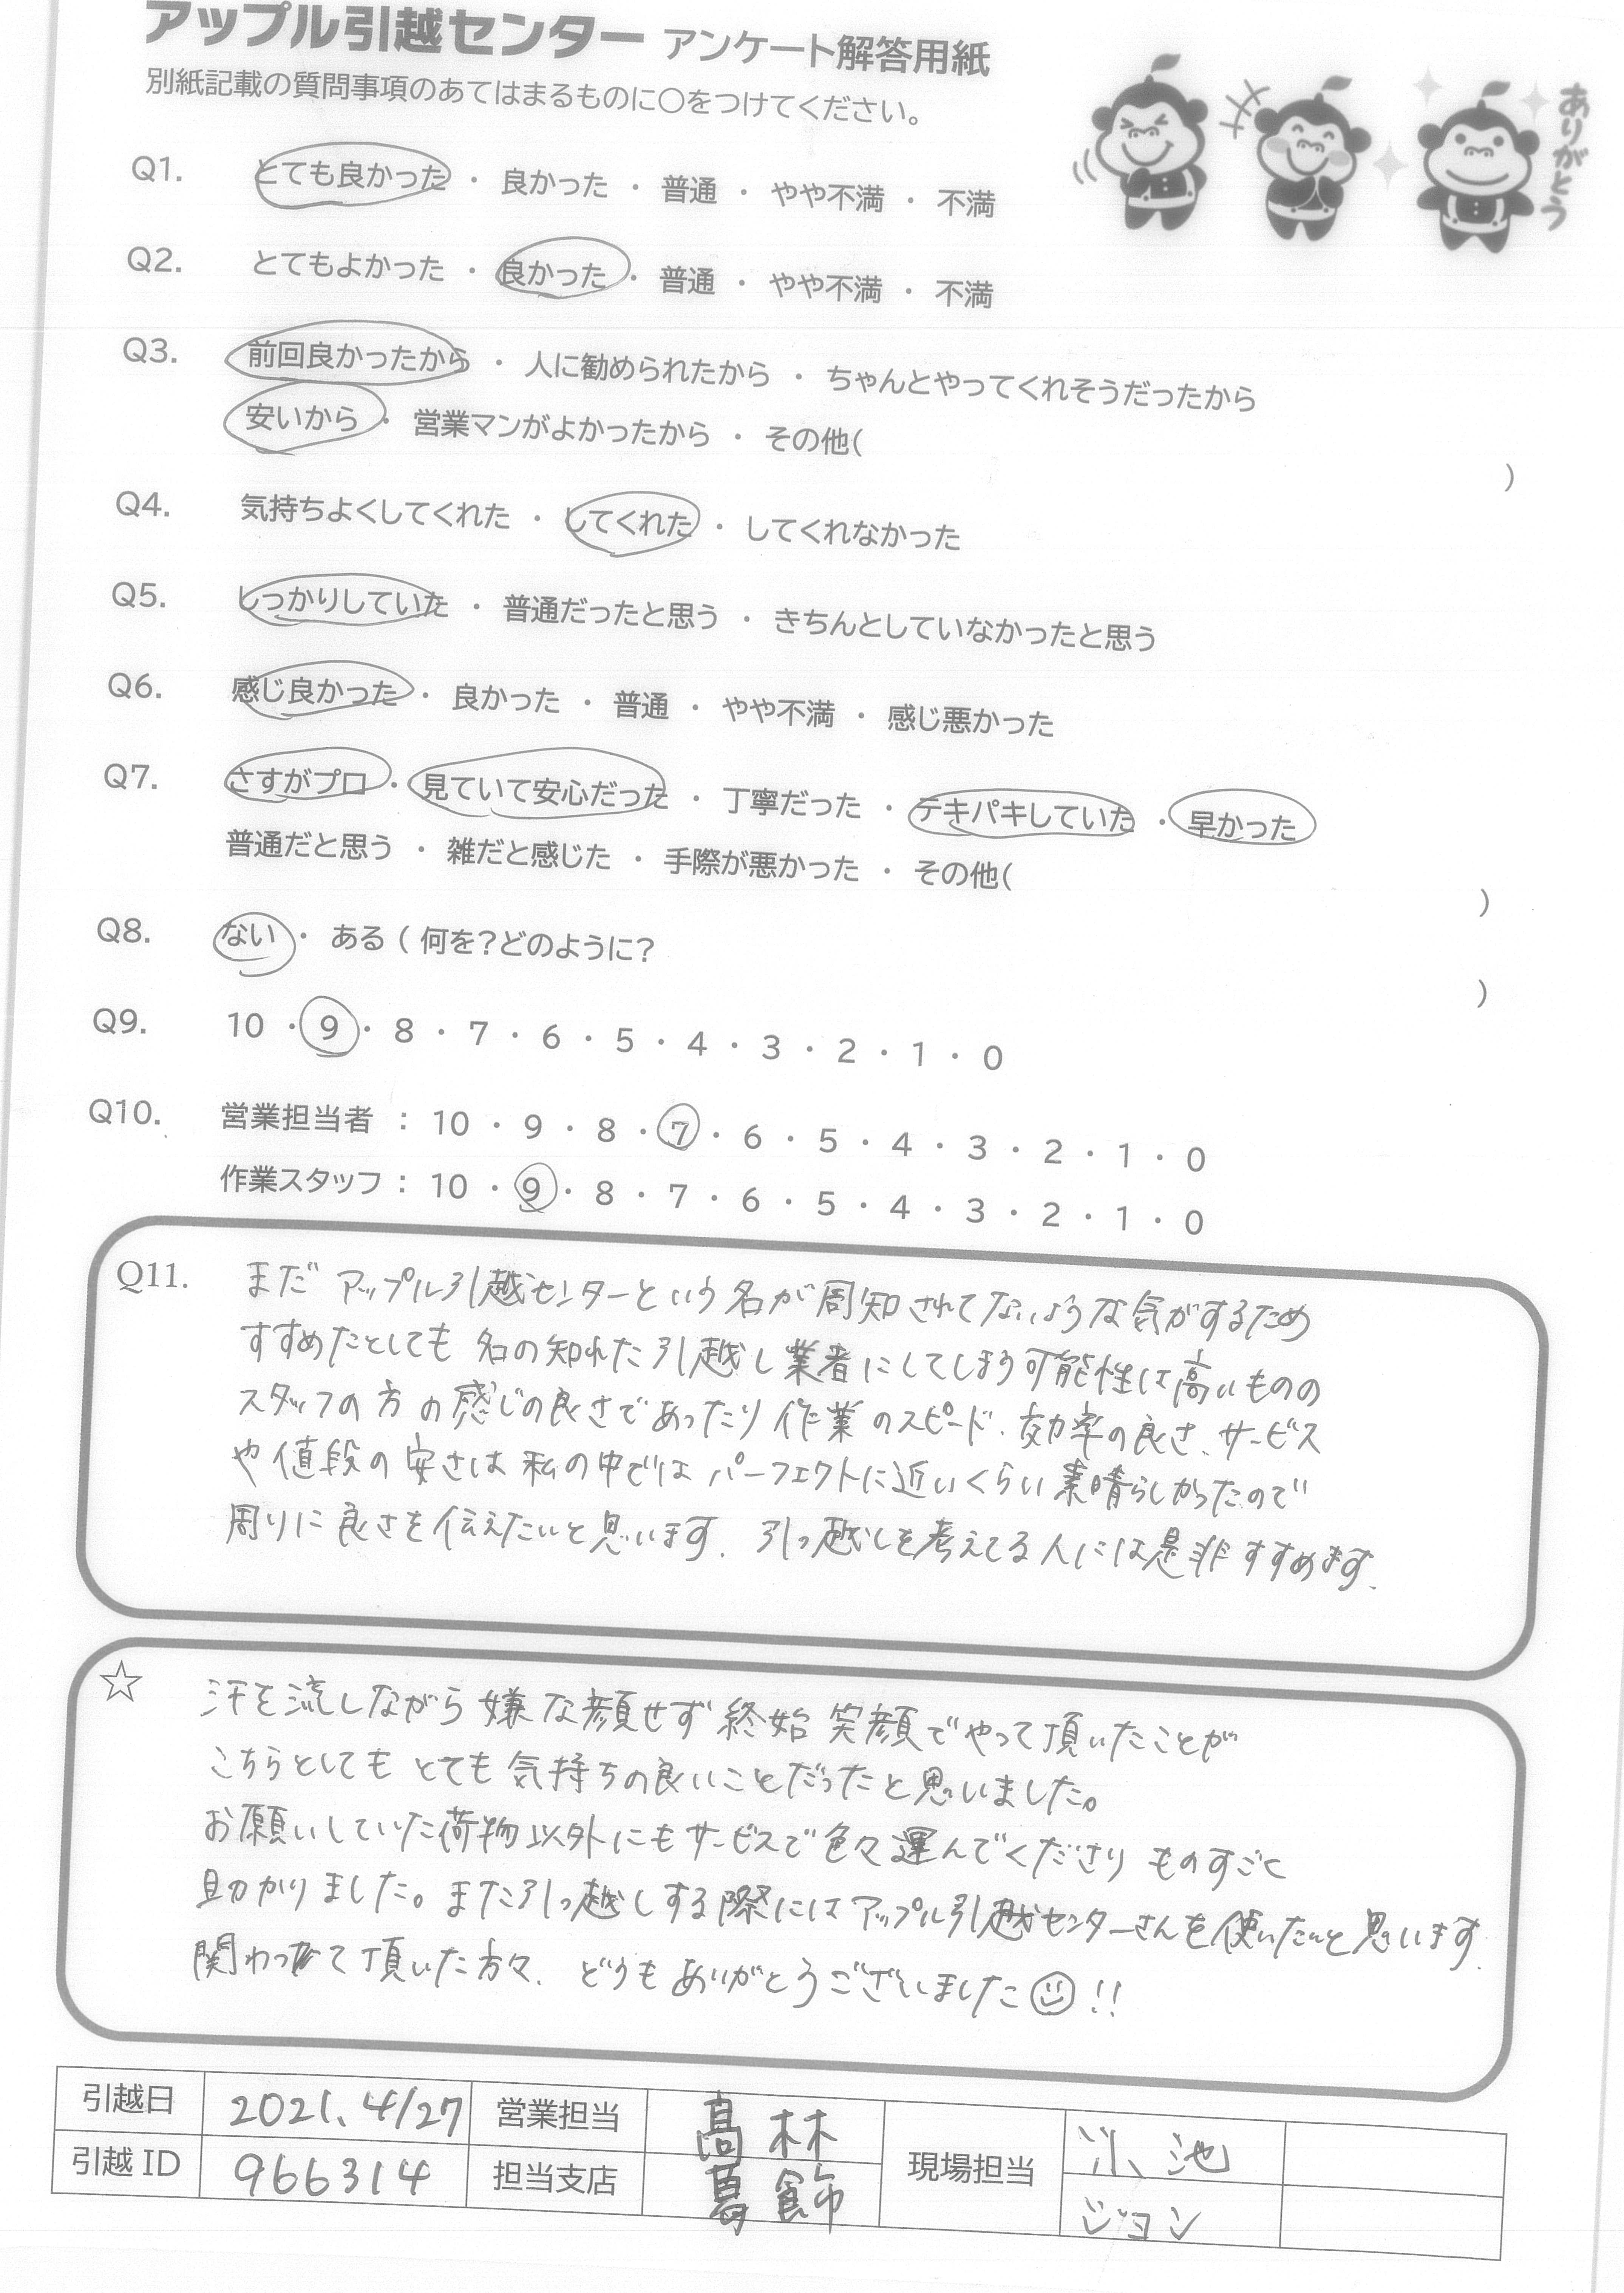 アップル引越センター アンケート解答用紙
別紙記載の質問事項のあてはまるものに○をつけてください。
ありがとう
Q1. とても良かった ・ 良かった ・ 普通 ・ やや不満 ・ 不満
Q2. とてもよかった ・ 良かった ・ 普通 ・ やや不満 ・ 不満
Q3. 前回良かったから ・ 人に勧められたから ・ ちゃんとやってくれそうだったから
安いから ・ 営業マンがよかったから ・ その他( )
Q4. 気持ちよくしてくれた ・ してくれた ・ してくれなかった
Q5. しっかりしていた ・ 普通だったと思う ・ きちんとしていなかったと思う
Q6. 感じ良かった ・ 良かった ・ 普通 ・ やや不満 ・ 感じ悪かった
Q7. さすがプロ ・ 見ていて安心だった ・ 丁寧だった ・ テキパキしていた ・ 早かった
普通だと思う ・ 雑だと感じた ・ 手際が悪かった ・ その他( )
Q8. ない ・ ある ( 何を?どのように? )
Q9. 10 ・ 9 ・ 8 ・ 7 ・ 6 ・ 5 ・ 4 ・ 3 ・ 2 ・ 1 ・ 0
Q10. 営業担当者 : 10 ・ 9 ・ 8 ・ 7 ・ 6 ・ 5 ・ 4 ・ 3 ・ 2 ・ 1 ・ 0
作業スタッフ : 10 ・ 9 ・ 8 ・ 7 ・ 6 ・ 5 ・ 4 ・ 3 ・ 2 ・ 1 ・ 0
Q11. まだ アップル引越センターという名が周知されてないような気がするため
すすめたとしても 名の知れた引越し業者にしてしまう可能性は高いものの
スタッフの方の感じの良さであったり作業のスピード、効率の良さ、サービス
や値段の安さは私の中ではパーフェクトに近いくらい素晴らしかったので
周りに良さを伝えたいと思います、引っ越しを考えてる人には是非すすめます、
☆ 汗を流しながら嫌な顔せず終始笑顔でやって頂いたことが
こちらとしてもとても気持ちの良いことだったと思いました。
お願いしていた荷物以外にもサービスで色々運んでくださりものすごく
助かりました。また引っ越しする際にはアップル引越センターさんを使いたいと思います、
関わって頂いた方々、どうもありがとうございました☺!!
引越日 2021、4/27 営業担当 高林 現場担当 小池
引越ID 966314 担当支店 葛飾 ジョン